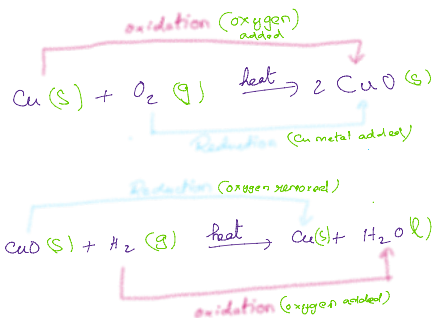 oxidation (oxygen added)
Cu (s) + O2 (g) heat → 2 CuO (s)
Reduction (Cu metal added)
Reduction (oxygen removed)
CuO (s) + H2 (g) heat → Cu(s) + H2O (l)
oxidation (oxygen added)